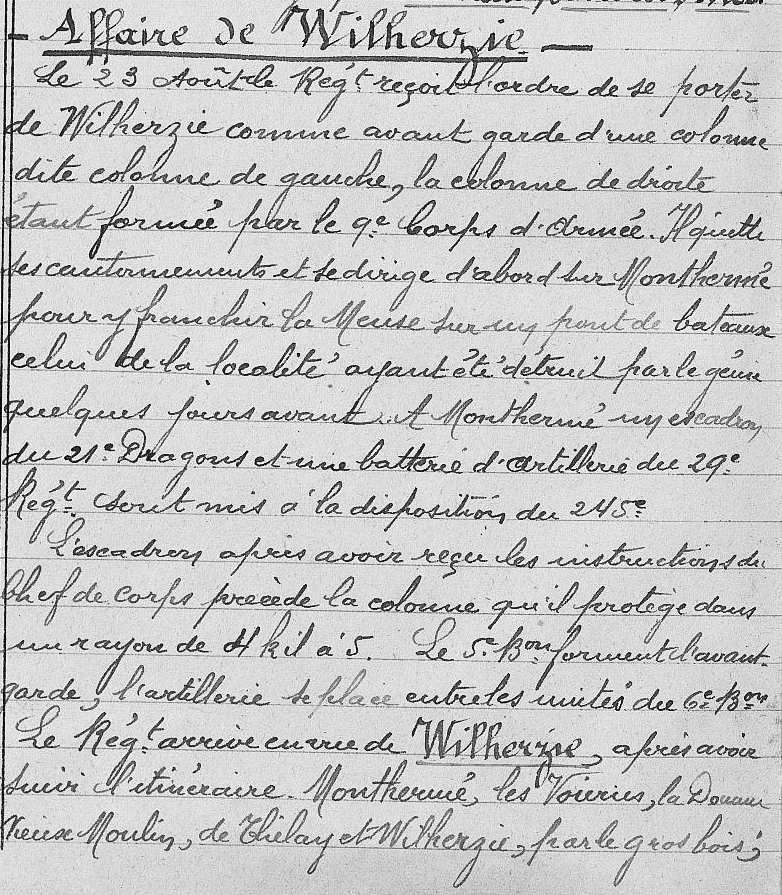 - Affaire de Wilherzie. -
Le 23 Août le Régt. reçoit l'ordre de se porter
de Wilherzie comme avant garde d'une colonne
dite colonne de gauche, la colonne de droite
étant formée par le 9e Corps d'Armée. Il quitte
ses cantonnements et se dirige d'abord sur Monthermé
pour y franchir la Meuse sur un pont de bateaux
celui de la localité ayant été détruit par le génie
quelques jours avant. A Monthermé un escadron
du 21e Dragons et une batterie d'artillerie du 29e
Régt. sont mis à la disposition du 245e
L'escadron après avoir reçu les instructions du
Chef de corps précède la colonne qu'il protège dans
un rayon de 4 kil à 5. Le 5e Bon forment l'avant-
garde, l'artillerie se place entre les unités du 6e Bon
Le Régt. arrive en vue de Wilherzie, après avoir
suivi l'itinéraire. Monthermé, les Voieries, la Douane
Vieux Moulin, de Thilay et Wilherzie, par le gros bois,